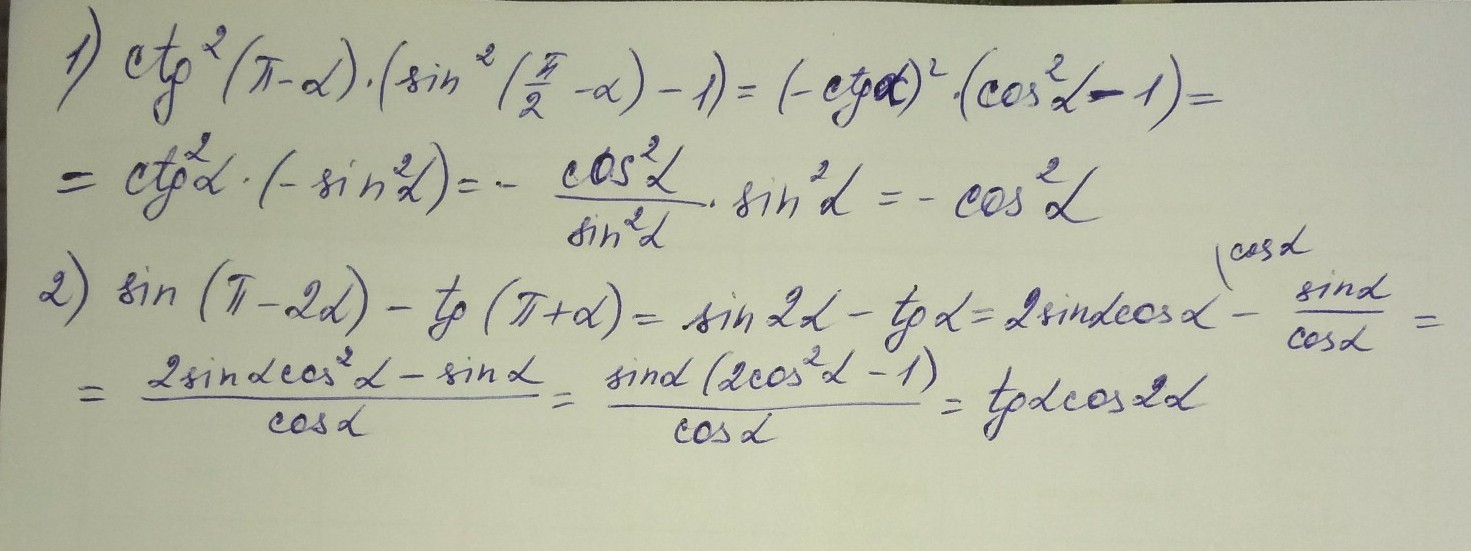 1) ctg²(π-α)·(sin²(π/2 -α) - 1) = (-ctgα)²·(cos²α - 1) =
= ctg²α·(-sin²α) = - cos²α/sin²α · sin²α = - cos²α
2) sin(π-2α) - tg(π+α) = sin2α - tgα = 2sinαcosα^(cosα - sinα/cosα =
= (2sinαcos²α - sinα)/cosα = sinα(2cos²α - 1)/cosα = tgαcos2α